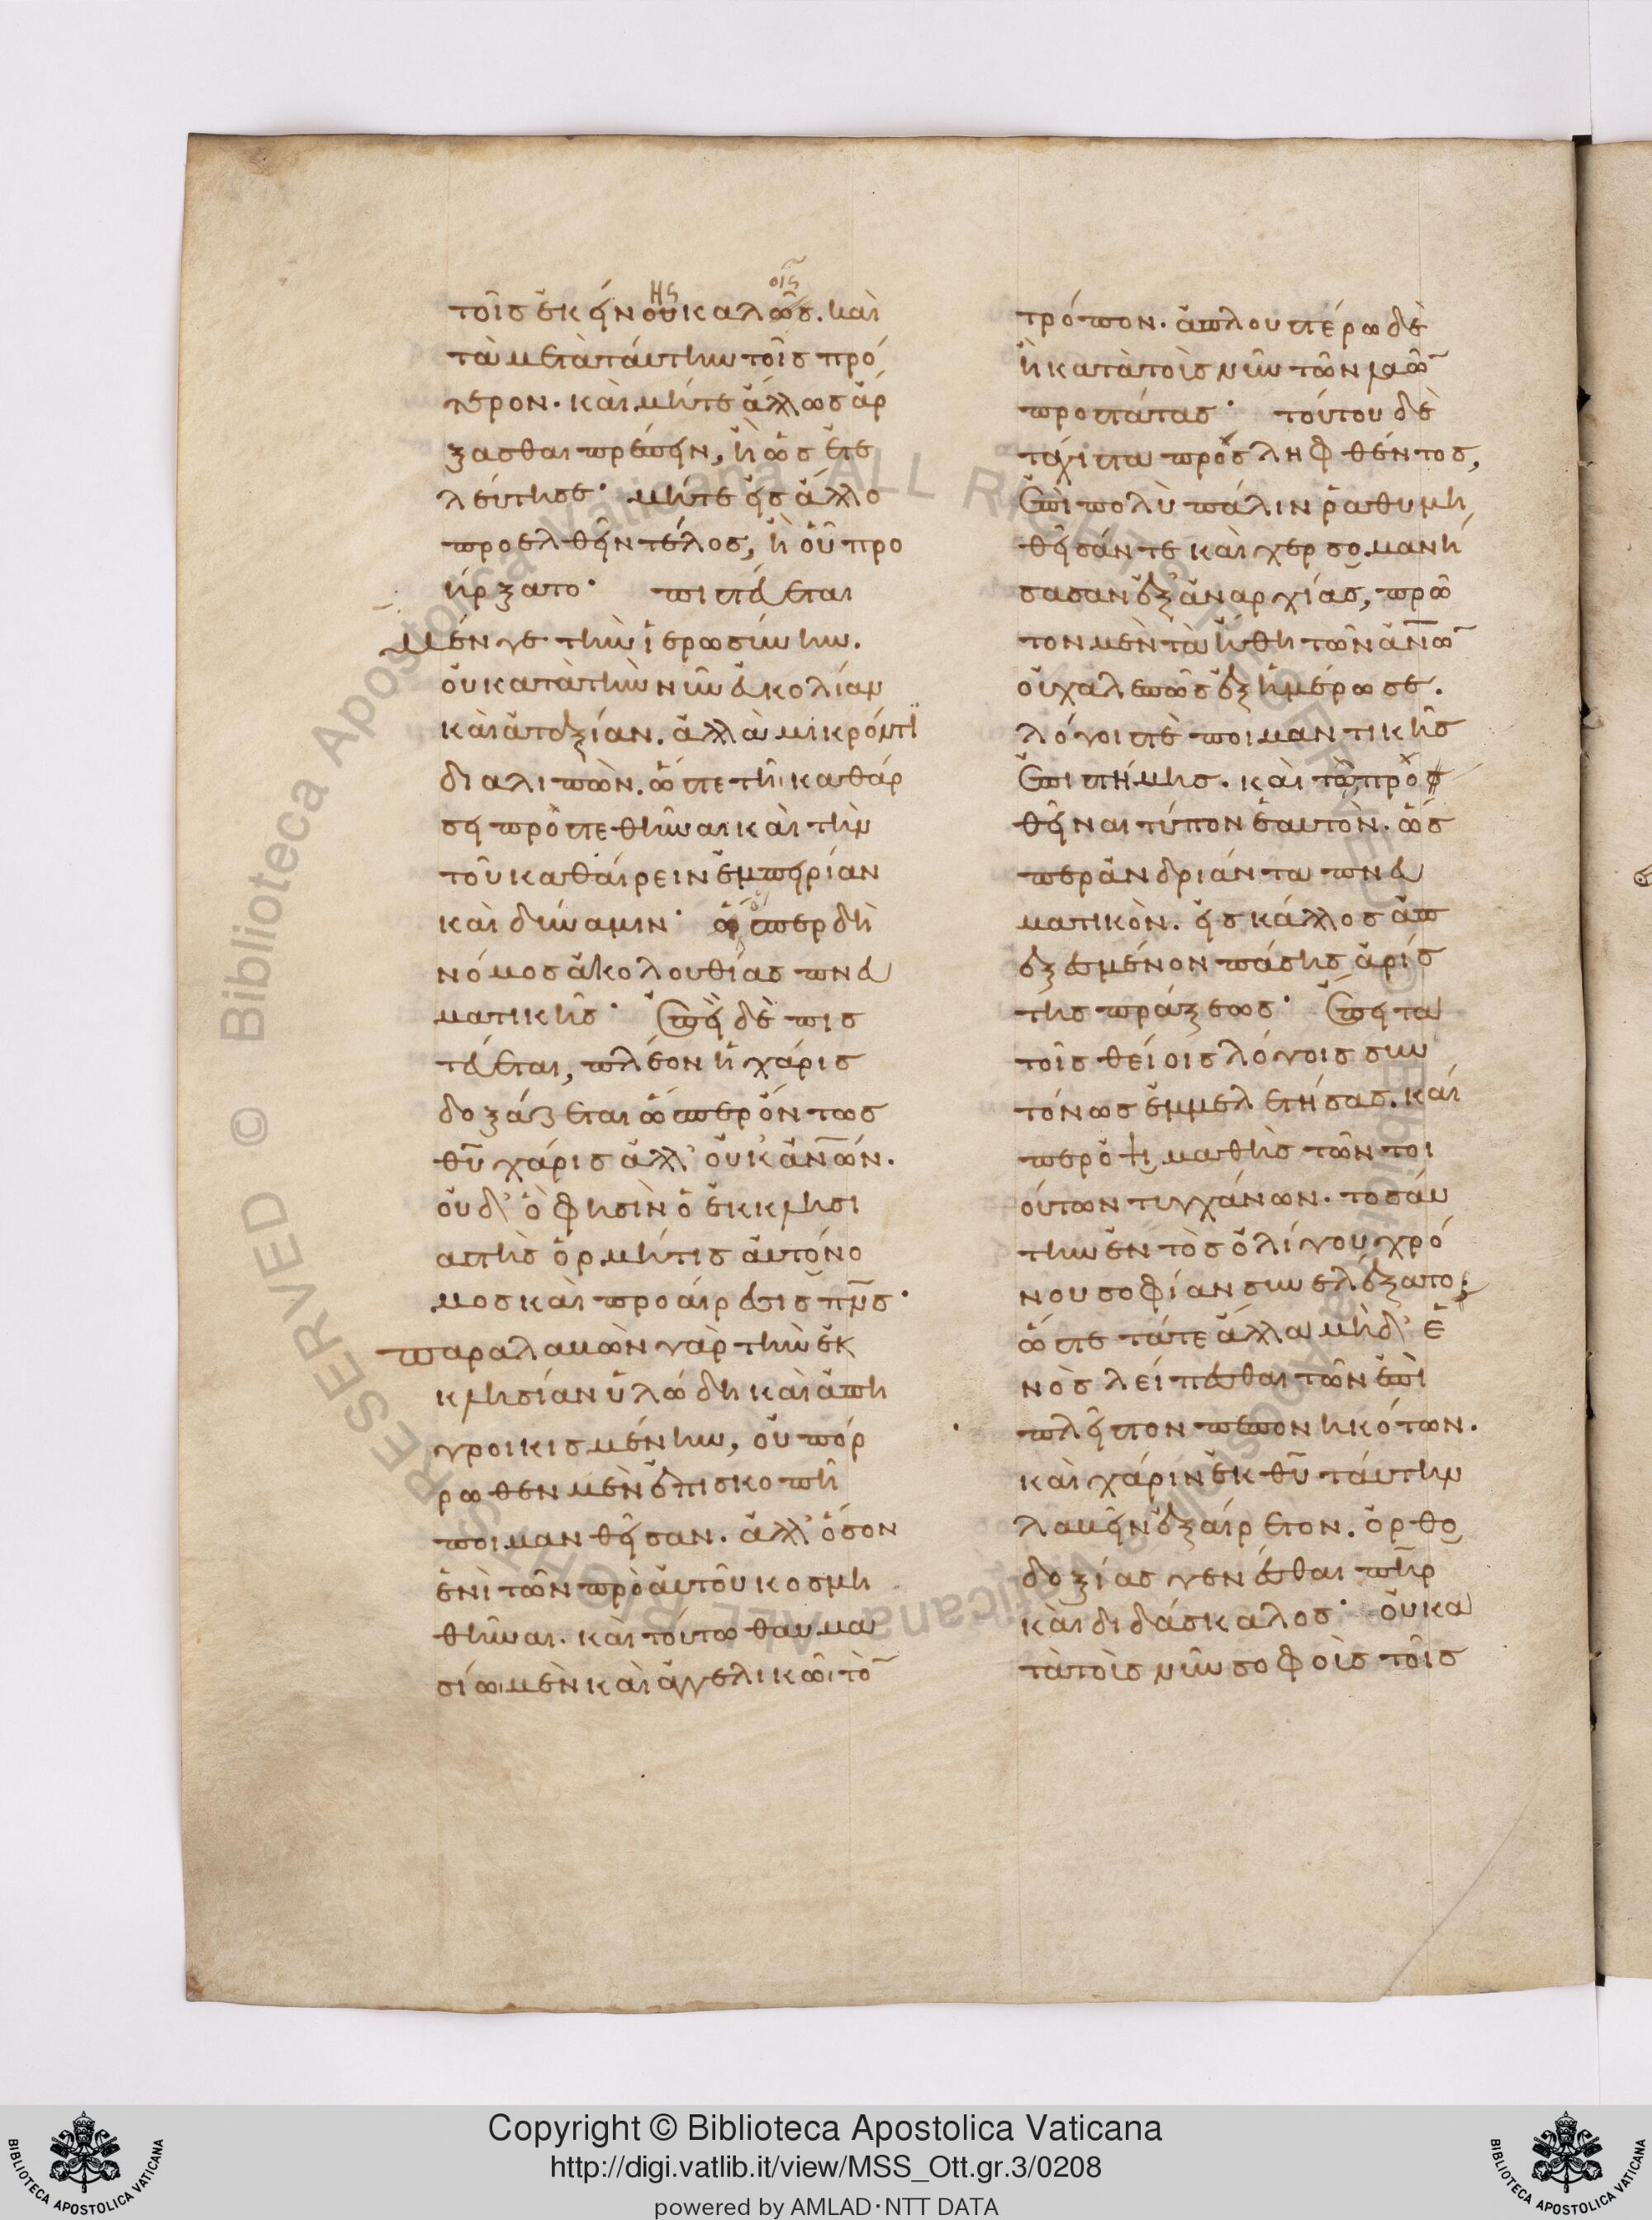 τοῖς ἐκείνου καλῶς. καὶ
ης οῖς
τὰ μετὰ ταύτην τοῖς πρό
τερον. καὶ μήτε ἄλλως ἄρ
ξασθαι πρέπειν, ἢ ὡς ἐτε
λεύτησε· μήτε εἰς ἄλλο
προελθεῖν τέλος, ἢ οὗ προ
ήρξατο· πιστεύεται
μέν γε τὴν ἱερωσύνην.
οὐ κατὰ τὴν νῦν εὐκολίαν
καὶ ἀταξίαν. ἀλλὰ μικρόν τι
διαλιπὼν. ὥστε τῆι καθάρ
σει προστεθῆναι καὶ τὴν
τοῦ καθαίρειν ἐμπειρίαν
καὶ δύναμιν· ὥσπερ δὴ
νόμος ἀκολουθίας πνευ
ματικῆς· ἐπεὶ δὲ πισ
τεύεται, πλέον ἡ χάρις
δοξάζεται ὥσπερ ὄντως
θυ χάρις ἀλλ' οὐκ ἀνων.
οὐδ' ὅ φησὶν ὁ ἐκκλησι
αστὴς ὁρμή τις αὐτόνο
μος καὶ προαίρεσις πνς·
παραλαβὼν γὰρ τὴν ἐκ
κλησίαν ὑλώδη καὶ ἀπη
γροικισμένην, οὐ πόρ
ρωθεν μὲν ἐπισκοπῆι
ποιμανθεῖσαν. ἀλλ' ὅσον
ἑνὶ τῶν πρὸ αὐτοῦ κοσμη
θῆναι. καὶ τούτω θαυμα
σίωι μὲν καὶ ἀγγελικῶι τὸν
τρόπον. ἁπλουστέρω δὲ
ἢ κατὰ τοὺς νῦν τῶν λαῶν
προστάτας· τούτου δὲ
τάχιστα προσληφθέντος,
ἐπὶ πολὺ πάλιν ῥαθυμη
θεῖσάν τε καὶ χερσομανή
σασαν ἐξ ἀναρχίας, πρῶ
τον μὲν τὰ ἤθη τῶν ἀνων
οὐ χαλεπῶς ἐξημέρωσε.
λόγοις τὲ ποιμαντικῆς
ἐπιστήμης. καὶ τῶ προσ
θεῖναι τύπον ἑαυτὸν. ὥσ
περ ἀνδριάντα πνευ
ματικὸν. εἰς κάλλος ἀπ
εξεσμένον πάσης ἀρίσ
της πράξεως· ἔπειτα
τοῖς θείοις λόγοις συν
τόνως ἐμμελετήσας. καὶ
περ ὀψιμαθὴς τῶν τοι
ούτων τυγχάνων. τοσαύ
την ἐντὸς ὀλίγου χρό
νου σοφίαν συνελέξατο·
ὥστε τά τε ἄλλα μηδ' ἑ
νὸς λείπεσθαι τῶν ἐπὶ
πλεῖστον πεπονηκότων.
καὶ χάριν ἐκ θυ ταύτην
λαβεῖν ἐξαίρετον. ὀρθο
δοξίας γενέσθαι πηρ
καὶ διδάσκαλος· οὐ κα
τὰ τοὺς νῦν σοφοὺς τοῖς
Copyright © Biblioteca Apostolica Vaticana
http://digi.vatlib.it/view/MSS_Ott.gr.3/0208
powered by AMLAD·NTT DATA